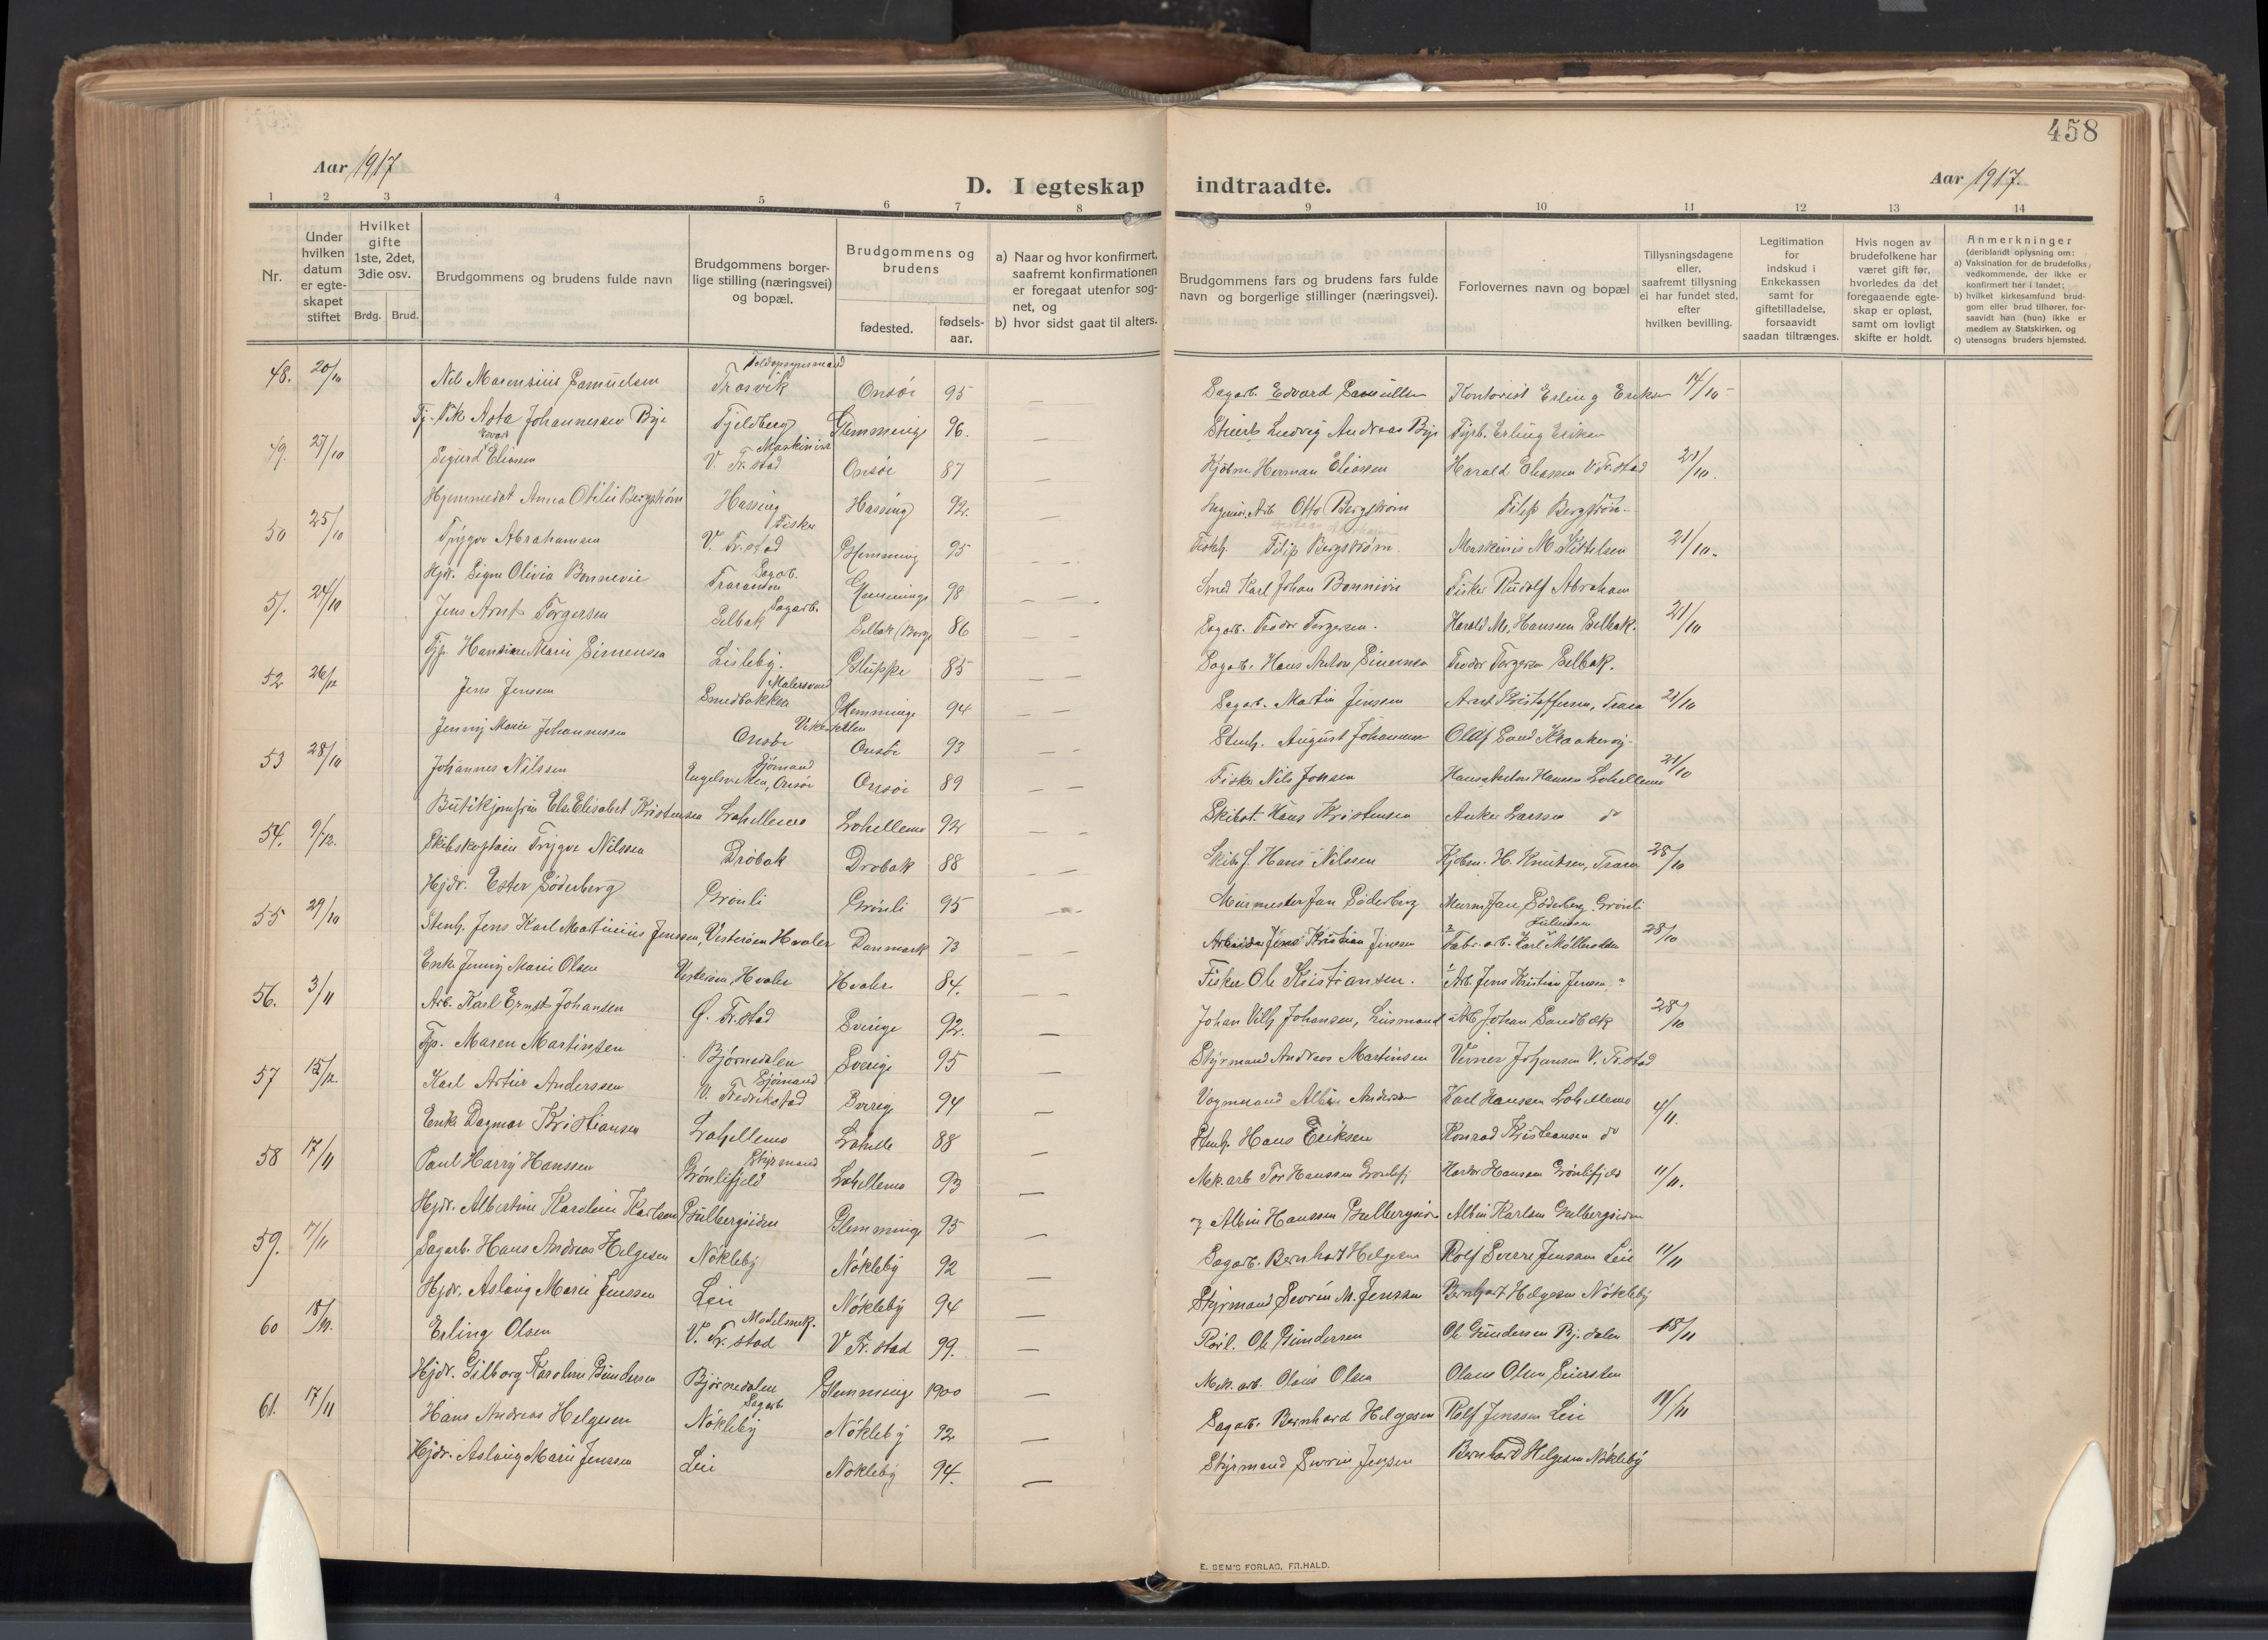 458
Aar 1917
Aar 1917.
D. I egteskap indtraadte.
1 2 3 4 5 6 7 8 9 10 11 12 13 14
Nr.
Under hvilken datum er egteskapet stiftet
Hvilket gifte 1ste, 2det, 3die osv.
Brdg. Brud.
Brudgommens og brudens fulde navn
Brudgommens borgerlige stilling (næringsvei) og bopæl.
Brudgommens og brudens
fødested.
fødselsaar.
a) Naar og hvor konfirmert, saafremt konfirmationen er foregaat utenfor sognet, og
b) hvor sidst gaat til alters.
Brudgommens fars og brudens fars fulde navn og borgerlige stillinger (næringsvei).
Forlovernes navn og bopæl
Tillysningsdagene eller, saafremt tillysning ei har fundet sted, efter hvilken bevilling.
Legitimation for indskud i Enkekassen samt for giftetilladelse, forsaavidt saadan tiltrænges.
Hvis nogen av brudefolkene har været gift før, hvorledes da det foregaaende egteskap er opløst, samt om lovligt skifte er holdt.
Anmerkninger
(deriblandt oplysning om:
a) Vaksination for de brudefolks vedkommende, der ikke er konfirmert her i landet;
b) hvilket kirkesamfund brudgom eller brud tilhører, forsaavidt han (hun) ikke er medlem av Statskirken, og
c) utensogns bruders hjemsted.
Toldopsynsmand
48. 20/10 Nils Marensius Samuelsen Trosvik Onsøi 95 — Sagarb. Edvard Samuelsen Kontorist Erling Eriksen 14/10
Asta Johannessen Bye Fjeldberg Glemminge 96. — Ludvig Andreas Bye Erling Eriksen
Maskinist
49. 27/10 Sigurd Eliassen V. Fr.stad Onsøi 87 — Herman Eliassen Harald Eliassen V. Fr.stad 21/10.
Anna Otilie Bergstrøm Hassing Hassing 92. — Otto Bergstrøm Filip Bergstrøm
Fisker
50 25/10 Trygve Abrahamsen V. Fr.stad Glemming 95 — Filip Bergstrøm. Maskinis M. Kittelsen 21/10.
Hjdr. Signe Olivia Bonnevie Glemminge 98 — Smed Karl Johan Bonnivie Fisker Rudolf Abraham
Sagarb.
51. 24/10 Jens Arnt Torgersen Selbak Selbak (Borge 86 — Sagarb. Teodor Torgersen. Harald M. Hanssen Selbak. 21/10
Marie Simensen Lisleby. Gluppe 85 — Sagarb. Hans Anton Simensen Teodor Torgersen Selbak.
Malersvend
52 26/12 Jens Jenssen Smedbakken Glemminge 94 — Sagarb. Martin Jenssen Arnt Kristoffersen, Trara 21/10
Jenny Marie Johannessen Onsøi Onsøi 93 — Stenh. August Johannessen Olaf Sand Kraakerøy
Sjømand
53 28/10 Johannes Nilssen Engelsviken, Onsøi Onsøi 89 — Fisker Nils Jonsen Hans Anton Hansen Lahellemo 21/10
Else Elisabet Kristensen Lahellemo Lahellemo 92 — Hans Kristensen Anker Larssen do
54. 9/12. Skibskaptein Trygve Nilssen Drøbak Drøbak 88 — Hans Nilssen Kjøbm. H. Knutsen, Trara 28/10
Hjdr. Ester Søderberg Grønli Grønli 95 — Murmester Jan Søderberg Murm. Jan Søderberg Grønli
55 29/10 Stenh. Jens Karl Martinius Jenssen, Vesterøen Hvaler Danmark 73 — Arbeider Jens Kristian Jenssen Fabr. arb. Karl 28/10
Enke Jenny Marie Olsen Vesterøen, Hvaler Hvaler 84. — Fisker Ole Kristiansen. Arb. Jens Kristian Jenssen
56. 3/11 Arb. Karl Ernst Johansen Ø. Fr.stad Sverige 92. — Johan Vilh. Johansen, Arb. Johan Sandbæk 28/10
Maren Martinsen Bjørnedalen Sverige 95 — Styrmand Andreas Martinsen Verner Johansen V. Fr.stad
Sjømand
57 15/12. Karl Artur Anderssen V. Fredrikstad Sverige 94 — Vognmand Albin Anderssen Karl Hanssen Lahellemo 4/11.
Enke Dagmar Kristiansen Lahellemo Lahelle 88 — Stenh. Hans Eriksen Konrad Kristiansen do
Styrmand
58 17/11 Paul Harry Hanssen Grønlifjeld Lahellemo 93 — Mek. arb Tor Hanssen Grønlifj Hanssen Grønlifjeld 11/11.
Hjdr. Albertine Karoline Karlsen Gulbergsiden Glemminge 95 — Albin Hanssen Gulbergsid Albin Karlsen Gulbergsiden
59. 17/11 Sagarb. Hans Andreas Helgesen Nøkleby Nøkleby 92 — Sagarb. Bernhart Helgesen Rolf Sverre Jenssen Leie 11/11
Hjdr. Aslaug Marie Jenssen Leie Nøkleby 94 — Styrmand Severin M. Jenssen Bernhart Helgesen Nøkleby
Modelsnek.
60 Erling Olsen V. Fr. stad V Fr. stad 99. — Ole Gundersen Ole Gundersen Bj. dalen 18/11
Hjdr. Gilborg Karoline Gundersen Bjørnedalen Glemminge 1900 — Mek. arb. Olaus Olsen Olaus Olsen Seiersten
Sagarb.
61. 17/11 Hans Andreas Helgesen Nøkleby Nøkleby 92 — Sagarb. Bernhard Helgesen Rolf Jenssen Leie 11/11
Hjdr. Aslaug Marie Jenssen Leie Nøkleby 94. — Styrmand Severin Jenssen Bernhard Helgesen Nøkleby
E. SEM'S FORLAG, FR.HALD.